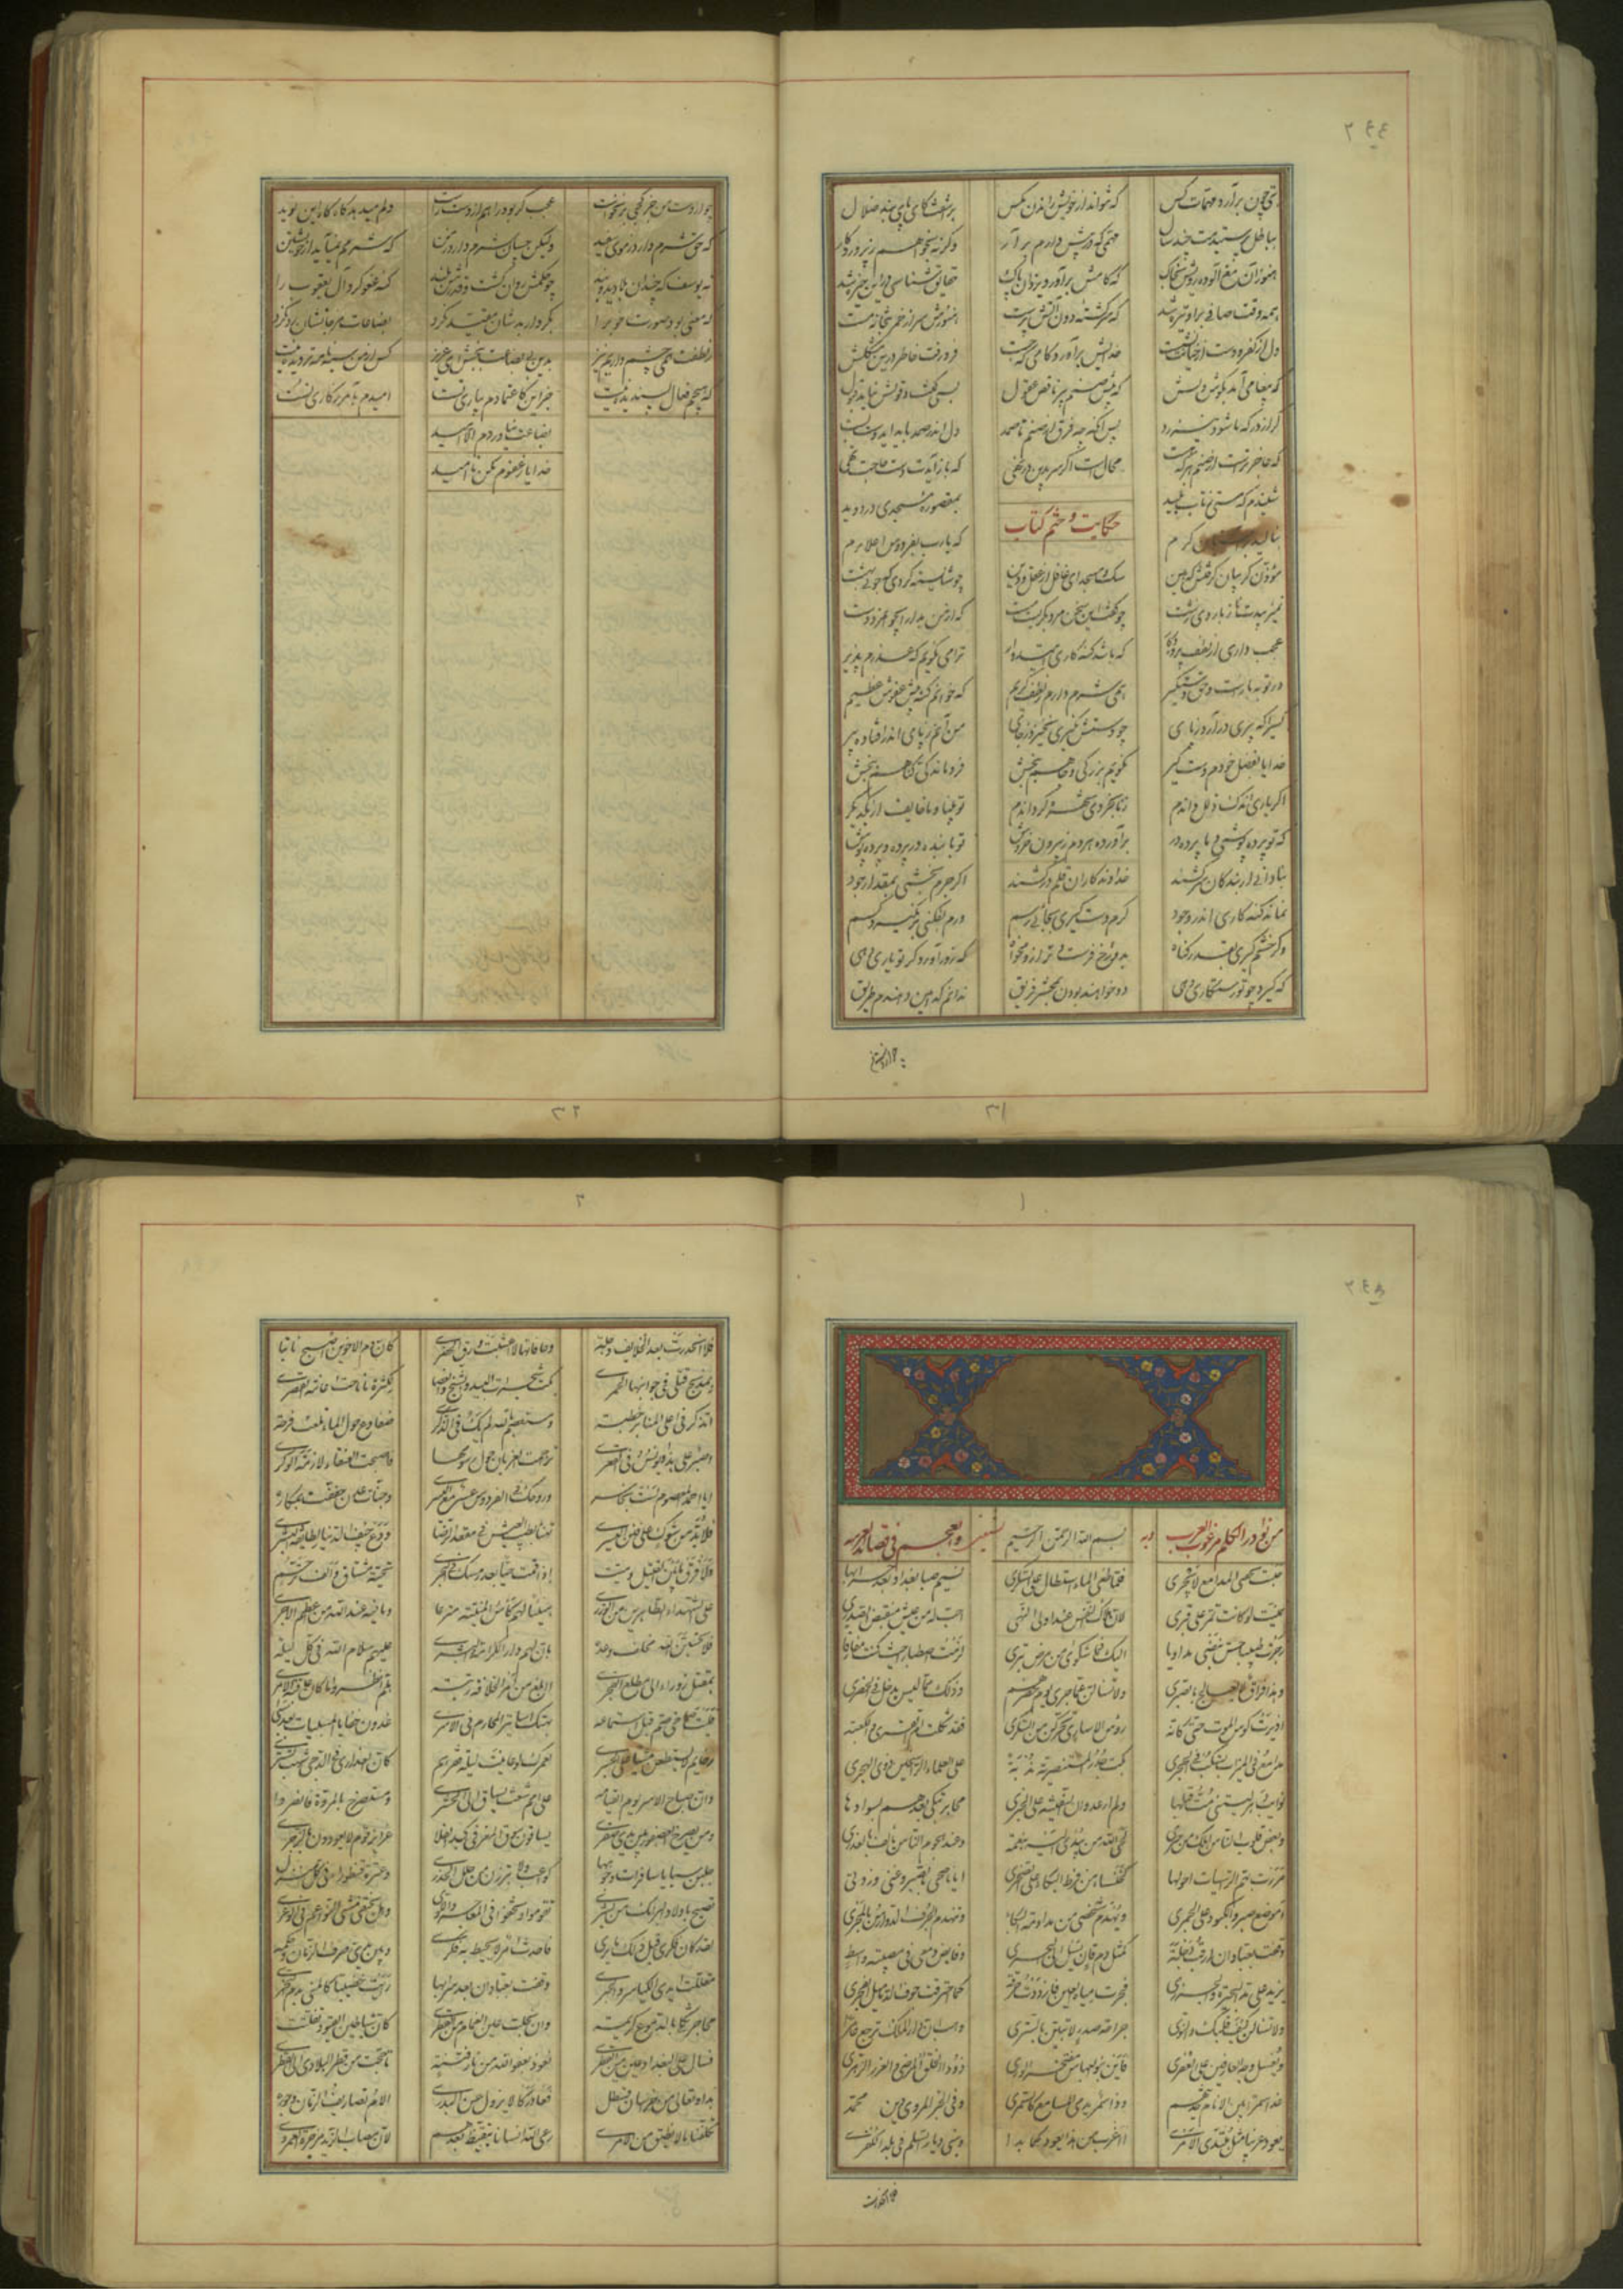 ٢٤٤
بتی چون برآرد مهمات کس که نتواند از خویش راندن مگس برآشفت کای پای بند ضلال
بباطل پرستیدمت چند سال مهمی که در پیش دارم برآر وگرنه بخواهم ز پروردگار
هنوز آن مغ آلوده رویش بخاک که کامش برآورد یزدان پاک حقایق شناسی درین خیره شد
همه وقت صافی براو تیره شد که سرگشته دون آتش پرست هنوزش سر از خمر بتخانه مست
دل از کفر و دست از خیانت نشست خدایش برآورد کامی که جست فرو رفت خاطر درین مشکلش
که پیغامی آمد بگوش دلش که پیش صنم پیر ناقص عقول بسی گفت و قولش نیامد قبول
گر از درگه ما شود نیز رد پس آنگه چه فرق از صنم تا صمد دل اندر صمد باید ای دوست بست
که عاجزترند از صنم هر که هست محالست اگر سر برین در نهی که باز آیدت دست حاجت تهی
شنیدم که مستی ز تاب نبید حکایت و ختم کتاب بمقصوره مسجدی در دوید
بنالید بر آستان کرم که یارب بفردوس اعلا برم
مؤذن گریبان گرفتش که هین سگ و مسجد ای غافل از عقل و دین چو شایسته کردی که خواهی بهشت
نمیزیبدت ناز با روی زشت چو گفت این سخن مرد بگریست مست که از من بدار ایخواجه دست
عجب داری از لطف پروردگار که باشد گنه کاری امیدوار ترا می نگویم که عذرم پذیر
در توبه بازست و حق دستگیر همی شرم دارم ز لطف کریم که خوانم گنه پیش عفوش عظیم
کسیرا که پیری درآرد ز پای چو دستش نگیری نخیزد ز جای من آنم ز پای اندر افتاده پیر
خدایا بفضل خودم دست گیر نگویم بزرگی و جاهم ببخش فروماندگی و گناهم ببخش
اگر یاری اندک زلل داندم بنابخردی شهره گرداندم تو بینا و ما خایف از یکدیگر
که تو پرده پوشی و ما پرده در برآورده مردم ز بیرون خروش تو با بنده در پرده و پرده پوش
بنادانی ار بندگان سرکشند خداوندگاران قلم درکشند اگر جرم بخشی بمقدار جود
نماند گنه کاری اندر وجود کرم دست گیری بجائی رسم ورم بفکنی برنگیرد کسم
وگر خشم گیری بقدر گناه بدوزخ فرست و ترازو مخواه که زور آورد گر تو یاری دهی
که گیرد چو تو رستگاری دهی دو خواهند بودن بمحشر فریق ندانم کدامین دهندم طریق
٣١
چو از دست من جز کجی برنخاست عجب گر بود راهم از دست راست دلم میدهد گاه گاه این نوید
که حق شرم دارد ز موی سفید ولیکن چسان شرم دارد ز من که شرمم نمیآید از خویشتن
نه یوسف که چندان بلا دید و بند چو حکمش روان گشت و قدرش بلند گنه عفو کرد آل یعقوب را
که معنی بود صورت خوب را بکردار بدشان مقید نکرد بضاعات مزجاتشان رد نکرد
ز لطفت همی چشم داریم نیز بدین بی بضاعت ببخش ای عزیز کس از من سیه نامه تر دیده نیست
که هیچم فعال پسندیده نیست جز این کاعتمادم بیاری تست امیدم بآمرزگاری تست
بضاعت نیاوردم الا امید
خدایا ز عفوم مکن نا امید
٣٢
١
٢٤٥
من نوادر الکلام مرغوب العرب بسم الله الرحمن الرحیم والعجم فی قصائد العربیه
حبست بجفنی المدامع لا تجری فلما طغی الماء استطال علی السکر نسیم صبا بغداد بعد خرابها
تمنیت لو کانت تمر علی قبری لان هلاک النفس عند اولی النهی احب له من عیش منقبض الصدر
زجرت طبیبا جس نبضی مداویا الیک فما شکوای من مرض تبری لزمت اصطبارا حیث کنت مفارقا
وهذا فراق لا یعالج بالصبر ولا تسالن عما جری یوم حصرهم وذلک مما لیس یدخل فی الحصر
ادیرت کؤس الموت حتی کانه رؤس الاساری ترجحن من السکر فقد ثکلت ام القری ولکعبة
مدامع فی المیزاب تسکب فی الحجر بکت جدر المستنصریة ندبة علی العلماء الراسخین ذوی الحجر
نوائب دهر لیتنی مت قبلها ولم ار عدوان السفیه علی الحبر محابر تبکی بعدهم بسوادها
وبعض قلوب الناس احلک من حبر لحی الله من یسدی الیه بنعمة وعند هجوم الناس یألف بالغدر
مررت بصم الراسیات اجوبها کخنساء من فرط البکاء علی صخر ایا ناصحی بالصبر دعنی وزفرتی
اموضع صبر والکبود علی الجمر ویهدم شخصی من مداومة البکاء وینهدم الجرف الدوارس بالمخر
وقفت بعبادان ارقب دجلة کمثل دم قان یسیل الی البحر وفائض دمعی فی مصیبة واسط
یزید علی مد البحیرة والجزر فجرت میاه العین فازددت حرقة کما احترقت جوف الدمامیل بالفجر
ولا تسالن کیف قلبک والنوی جراحة صدری لا تبین بالسبر وهب ان دار الملک ترجع عامرا
ویغسل وجه العارفین علی العفر فاین بنو العباس مفتخر الوری ذوو الخلق المرضی والغرر الزهر
غدا سمرا بین الانام حدیثهم وذا سمر یدمی المسامع کالسمر وفی الخبر المروی دین محمد
یعود غریبا مثل مبتدی الامر ااغرب من هذا یعود کما بدا وسبی دیار السلم فی بلد الکفر
فلا انحدرت
٢
فلا انحدرت بعد الخلایف دجلة وحافاتها لا اعشبت ورق الخضر کان دم الاخوین اصبح نابتا
بمذبح قتلی فی جوانبها الحمر بکت سمرات البید والشیح والغضا لکثرة ما ناحت
اتذکر فی اعلی المنابر خطبة ومستعصم بالله لم یک فی الذکر ضفادع حول الماء تلعب فرحة
اصبر علی هذا ویونس فی القعر تزاحمت الغربان حول رسومها فاصبحت العنقاء لازمة الوکر
ایا احمد المعصوم لست بخاسر وروحک فی الفردوس عسر مع الیسر وجنات عدن خففت بمکاره
فلابد من شوک علی فنن البسر تهنا بطیب العیش فی مقعد الرضا ودع جیف الدنیا لطائفة النسر
ولا فرق مابین القتیل ومیت اذا قمت حیا بعد رمسک تحیة مشتاق والف ترحم
علی الشهداء الطاهرین من الوزر هنیئا لهم کاس المنیة مترعا وما فیه عند الله من عظم الاجر
فلا تحسبن الله مخلف وعده بان لهم دار الکرامة والبشر علیهم سلام الله فی کل لیلة
بمقتل زوراء الی مطلع الفجر ءابلغ من امر الخلافة رتبة هلم انظروا ما کان عاقبة الامر
فلیت صماخی صم قبل استماعه بهتک اساتیر المحارم فی الاسر
لا یسطعن مشیا علی الحبر لعمرک لو عاینت لیلة نفرهم کان العذاری فی الدجی شهب تسری
وان صباح الاسر یوم القیامة علی امم شعث تساق الی الحشر ومستصرخ یا للمروة فانصروا
ومن یصرخ العصفور بین یدی صقر یساقون سوق المعز فی کبد الفلا عزایز قوم لم یعودون بالزجر
جلبن سبایا سافرات وجوهها کواعب لم یبرزن من خلل الخدر وعترة قنطوراء فی کل منزل
تصیح باولاد البرامک من یشری وهل یختفی مشی النواعم فی الوعر
لقد کان فکری قبل ذلک فاحدث امر لا یحیط به فکری وبین یدی صرف الزمان وحکمه
مغللة ایدی الکیاسة والخبر وقفت بعبادان بعد صراتها رأیت خضیبا کالمنی بدم النحر
محاجر ثکلی بالدموع کریمة وان بخلت عین الغمائم من القطر کان شیاطین القیود تفلتت
فسال علی بغداد عین من القطر نعوذ بعفو الله من نار فتنة تاججت من قطر البلاد الی القطر
بدا وتعالی من خراسان قسطل فعاد رکاما لا یزول عن البدر الام تصاریف الزمان وجوره
تکلفنا ما لا نطیق من الامر رعی الله انسانا تیقظ بعدهم لان مصاب الزید مزجرة العمرو